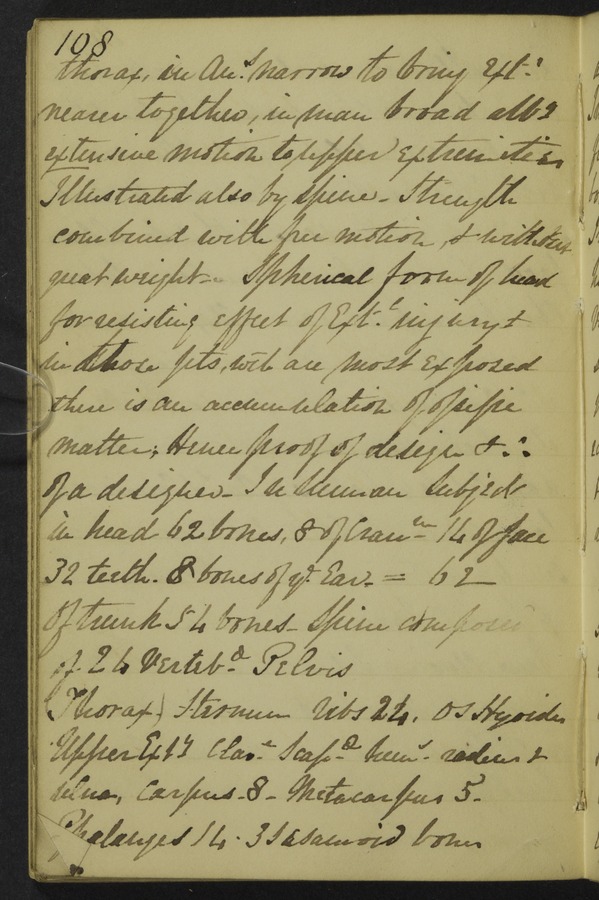 108
thorax, in An.s narrow to bring Ext.s
nearer together, in man broad all.g
extensive motion to upper extremities
Illustrated also by Spine - Strength
combined with free motion, & without
great weight - Spherical form of head
for resisting effect of Ext.l injury &
in those pts, wch are most exposed
there is an accumulation of ossific
matter; Hence proof of design & ∴
of a designer - In human Subject
in head 62 bones, 8 of Cran.m - 14 of face
32 teeth. 8 bones of ye Ear. = 62
Of trunk 54 bones - Spine composed
of 26 Verteb.a Pelvis
Thorax) Sternum ribs 24. Os Hyoides
Upper Ext.y Clav.e Scap.a hum.s radius &
ulna, Carpus - 8 - Metacarpus 5 -
Phalanges 14 - 3 Sesamoid bones